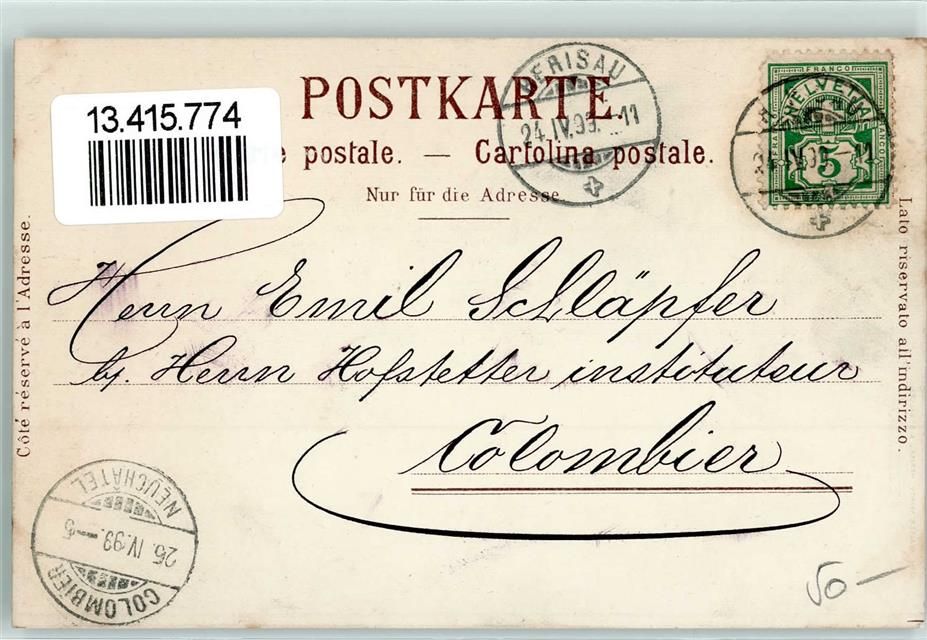 13.415.774
POSTKARTE.
postale. — Cartolina postale.
Nur für die Adresse
HERISAU
24.IV.99.
11
FRANCO
HELVETIA
5
Côté réservé à l'Adresse.
Lato riservato all'indirizzo.
Herrn Emil Schläpfer
bj. Herrn Hofstetter instituteur
Colombier
NEUCHÂTEL
25.IV.99.–5
COLOMBIER
50—